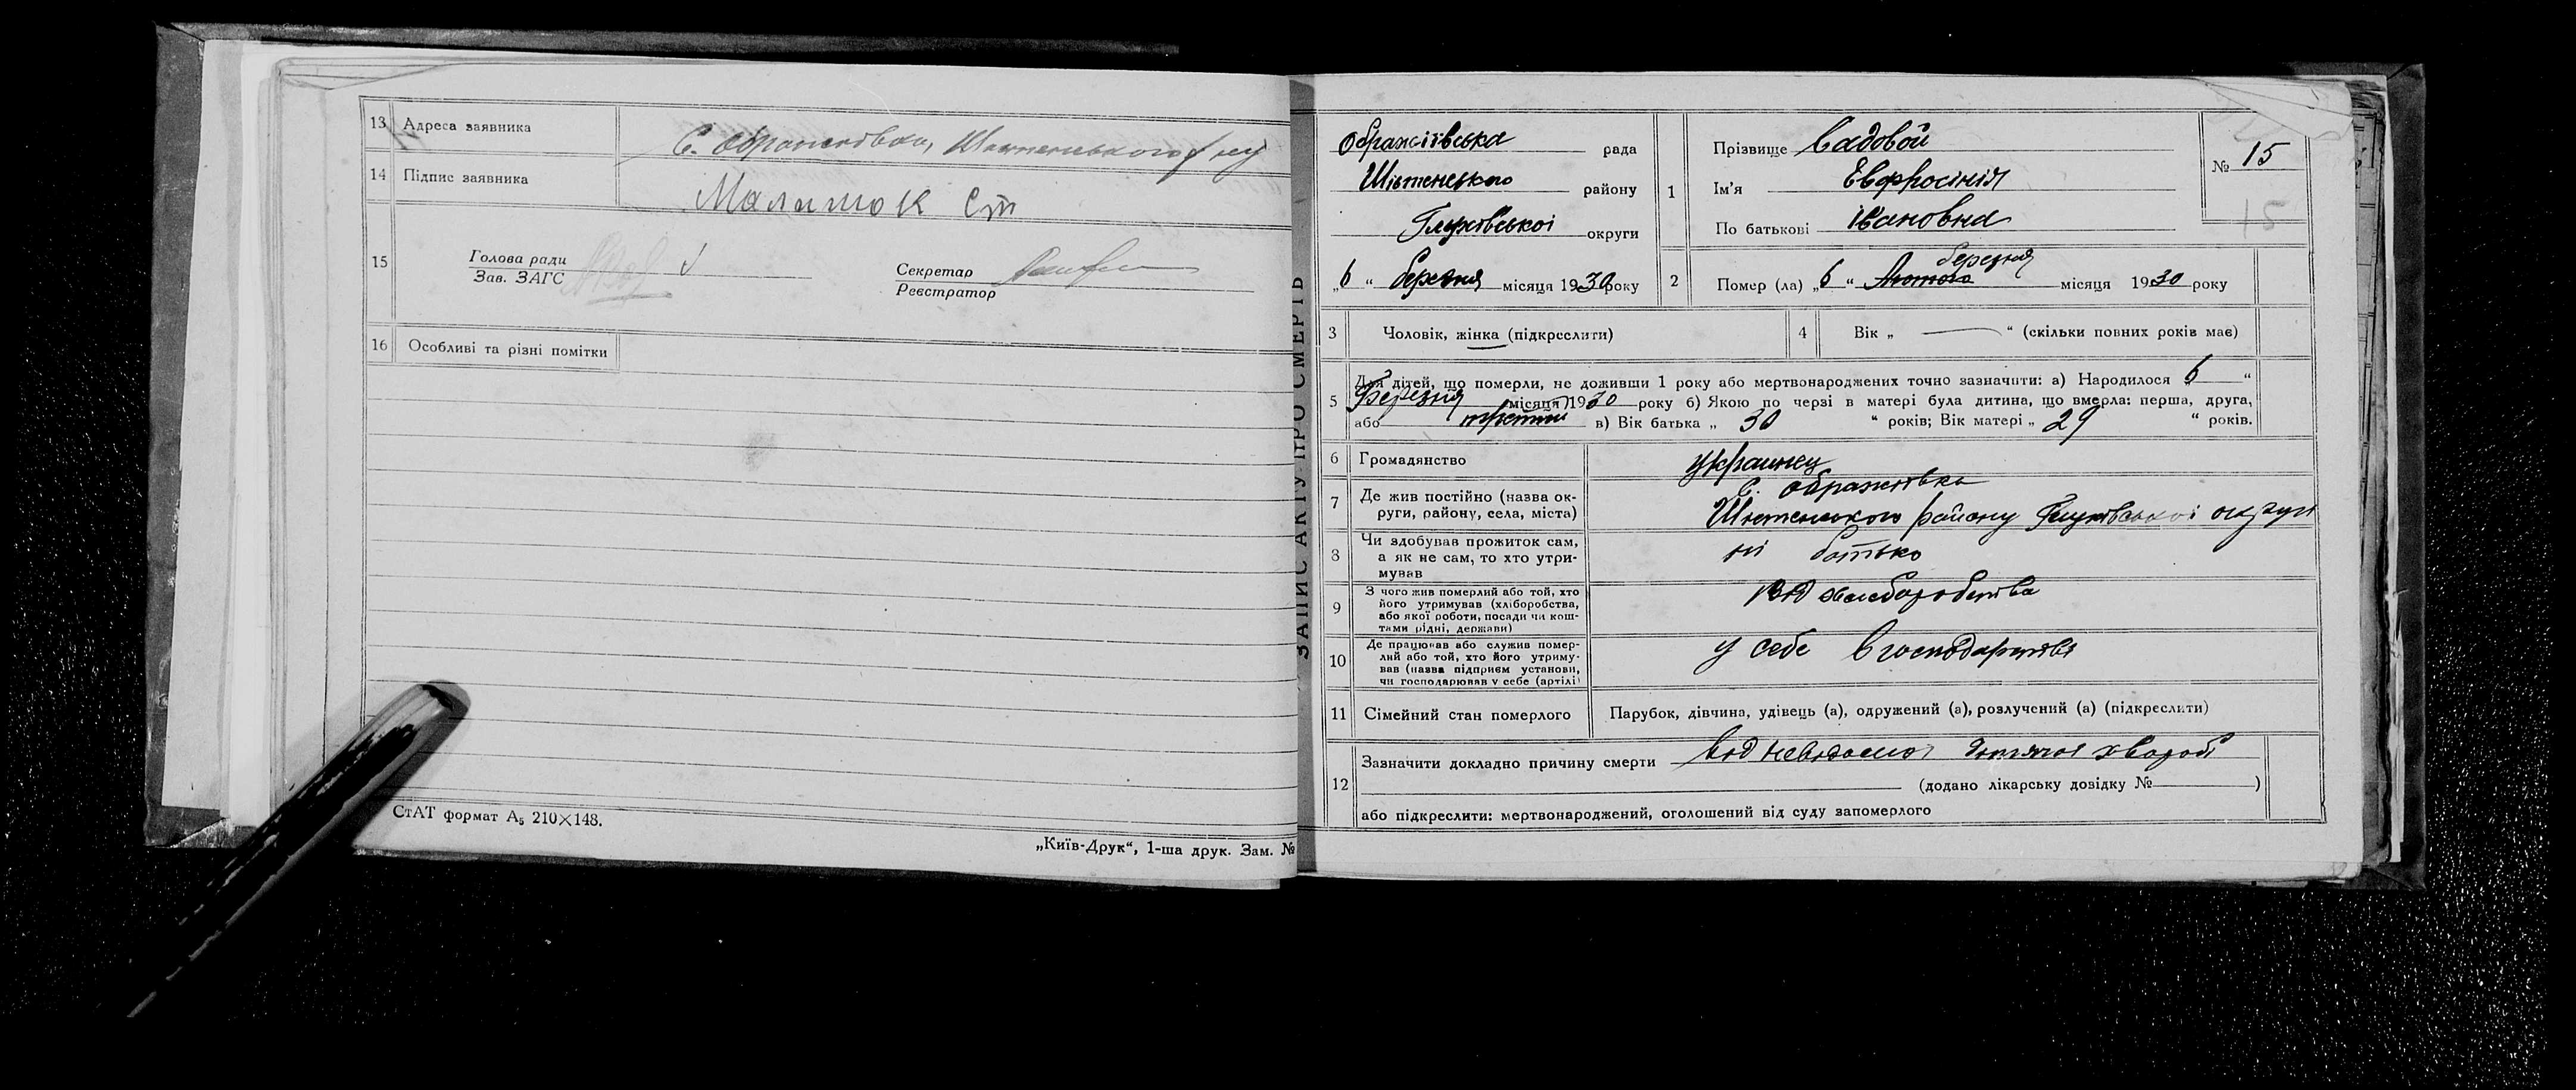 13 Адреса заявника С. Ображіївка, Шостенського р ну
14 Підпис заявника Малишок Ст
15 Голова ради
Зав. ЗАГС
Секретар
Реєстратор
16 Особливі та різні помітки
СтАТ формат А₅ 210×148.
„Київ-Друк“, 1-ша друк. Зам. №
ЗАПИС АКТУ ПРО СМЕРТЬ
Ображіївська рада
Шостенського району
Глухівської округи
„6“ березня місяця 1930 року
1 Прізвище Садовой
Ім'я Евфросінія
По батькові Івановна
№ 15
15
2 березня
Помер (ла) „6“ Лютого місяця 1930 року
3 Чоловік, жінка (підкреслити)
4 Вік „ — “ (скільки повних років має)
5 Для дітей, що померли, не доживши 1 року або мертвонароджених точно зазначити: а) Народилося „6“
Березня місяця 1930 року б) Якою по черзі в матері була дитина, що вмерла: перша, друга,
або третий в) Вік батька „ 30 “ років; Вік матері „ 29 “ років.
6 Громадянство украинец
7 Де жив постійно (назва ок-
руги, району, села, міста)
С. Ображіївка
Шостенського району Глухівської округи
8 Чи здобував прожиток сам,
а як не сам, то хто утри-
мував
ні батько
9 З чого жив померлий або той, хто
його утримував (хліборобства,
або якої роботи, посади чи кош-
тами рідні, держави)
від хлеборобства
10 Де працював або служив помер-
лий або той, хто його утриму-
вав (назва підприєм установи,
чи господарював у себе (артілі)
у себе в господарстві
11 Сімейний стан померлого Парубок, дівчина, удівець (а), одружений (а), розлучений (а) (підкреслити)
12 Зазначити докладно причину смерти від невідомої дитячої хвороб
(додано лікарську довідку № )
або підкреслити: мертвонароджений, оголошений від суду запомерлого